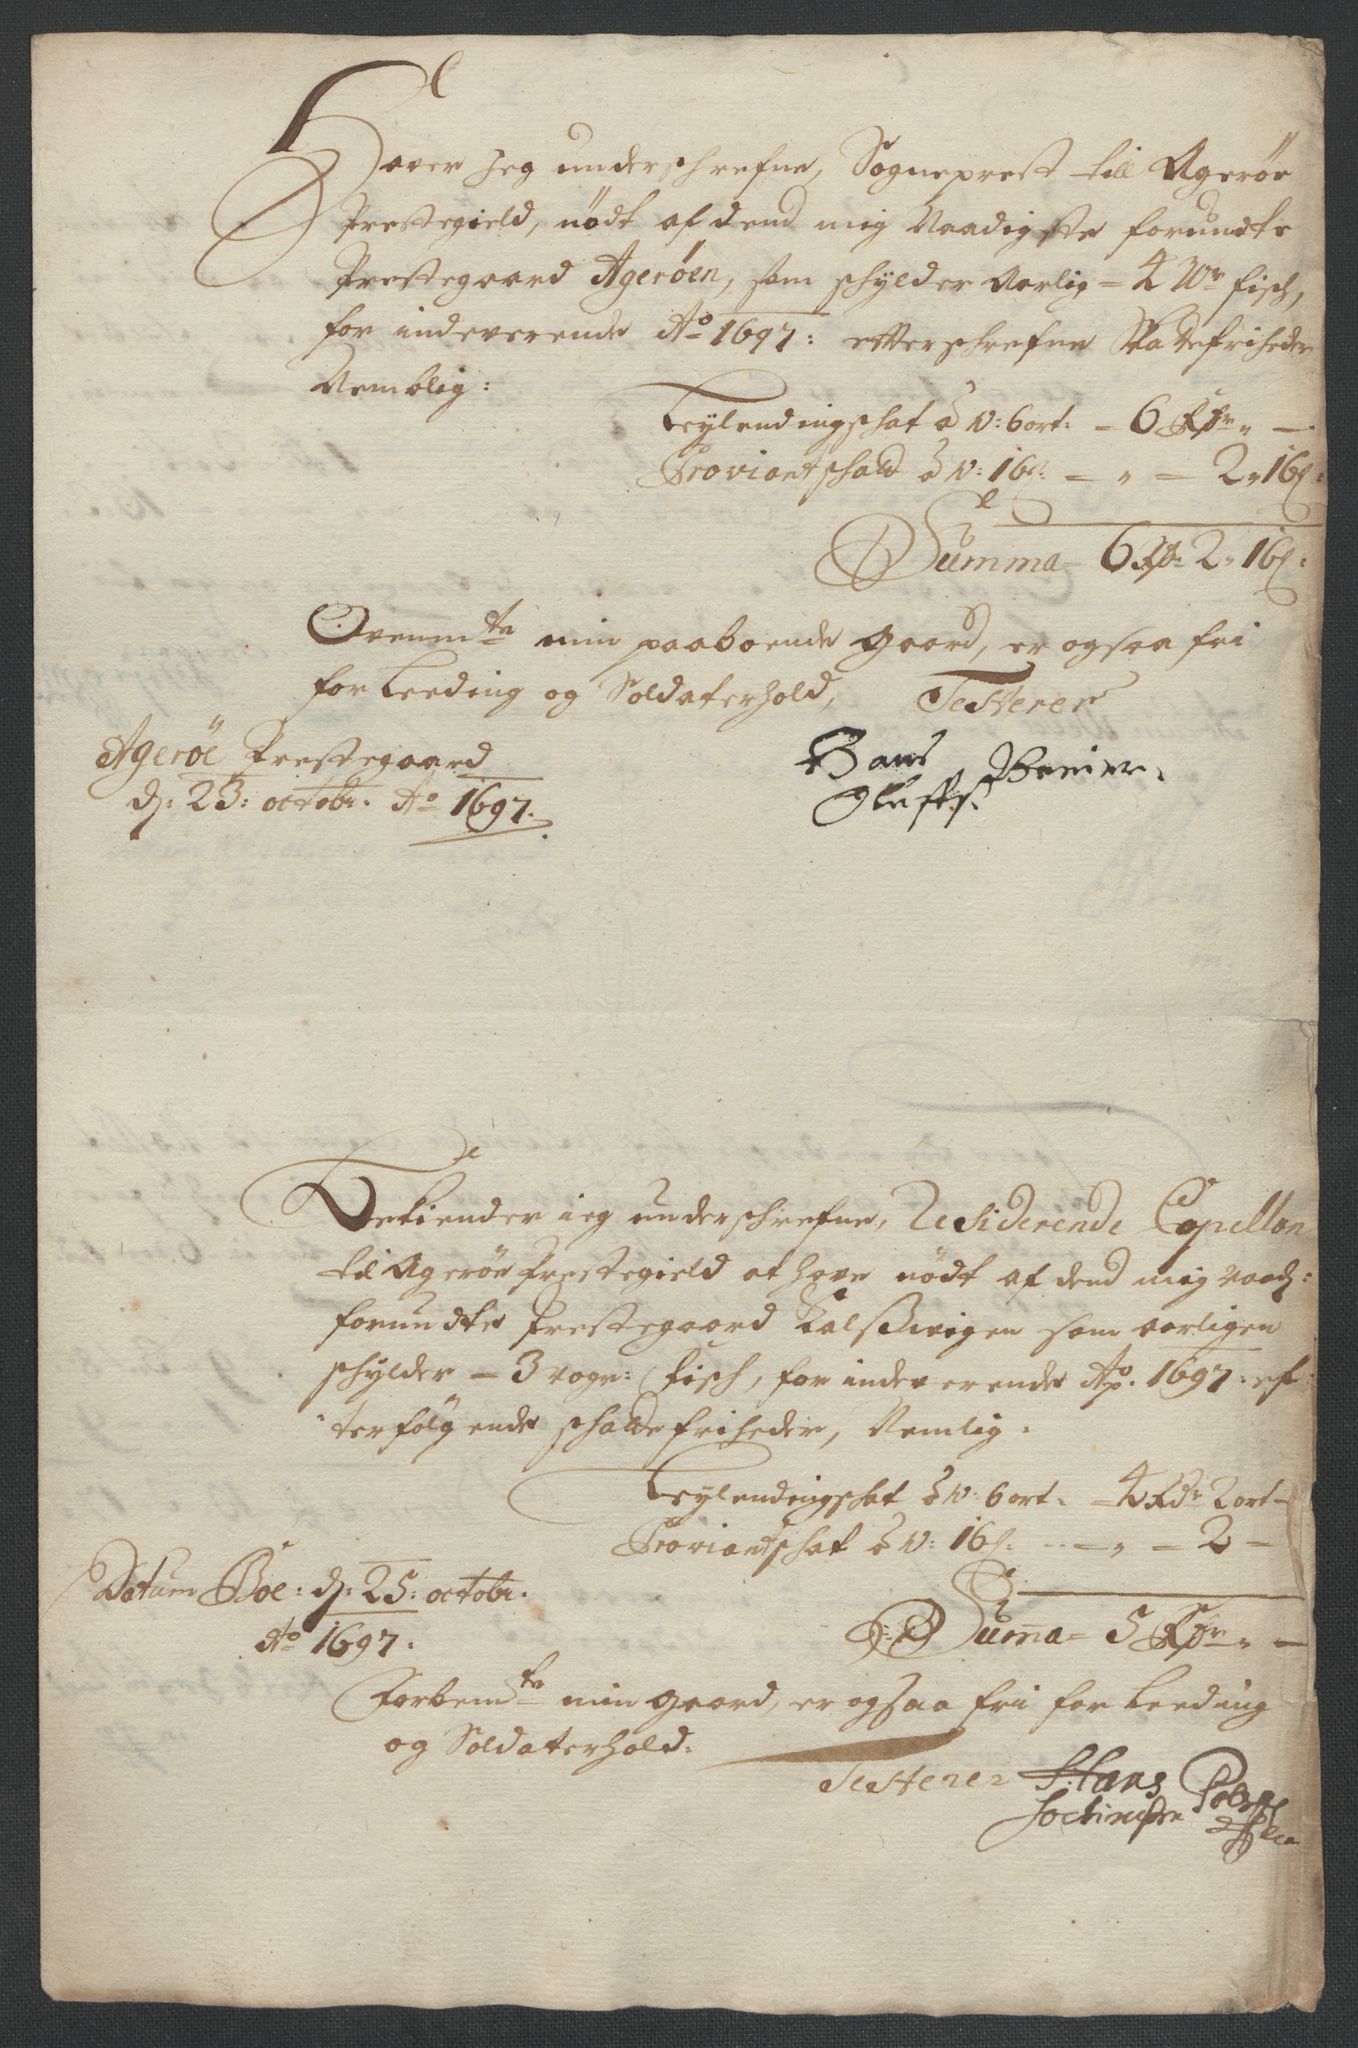 Hafver Jeg underschrefne, Sogneprest till Agerøe
Prestegield, nødt af dend mig Naadigste forundte
Prestegaard Agerøen, som schylder Aarlig = 4 Wr fisch,
for indeverende Ao 1697: effterschrefne Skattefriheder
Nemblig:
Leylendingschat à W: 6 ort: = 6 Rdr " —
Proviantschatt à W: 16ß: = " = 2 " 16ß:
Summa = 6 Rdr 2 " 16ß:
Ovenmte min paaboende gaard, er ogsaa fri
for Leeding og Soldaterhold, Testerer
Agerøe Prestegaard
dj: 23: octobr. Ao 1697.
Hans
Olufss.
Bekiender ieg underschrefne, Residerende Capellan
til Agerøe Prestegield at have nødt af dend mig naadj:
forundte Prestegaard Kalsßvigen som aarligen
schylder = 3 voger: fisch, for indeverende Ao. 1697: ef
terfølgende schattefriheder, Nemlig:
Leylendingschat à W: 6 ort: = 4 Rdr 2 ort —
Proviantschat à W: 16ß: — " — 2 —
Datum Bøe: dj: 25: octobr.
Ao 1697:
Suma = 5 Rdr " —
Forbemte min gaard, er ogsaa fri for Leeding
og Soldaterhold:
Testerer Hans